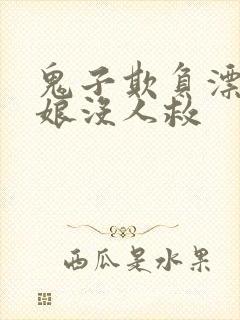 鬼子欺负漂
娘没人救
西瓜是水果